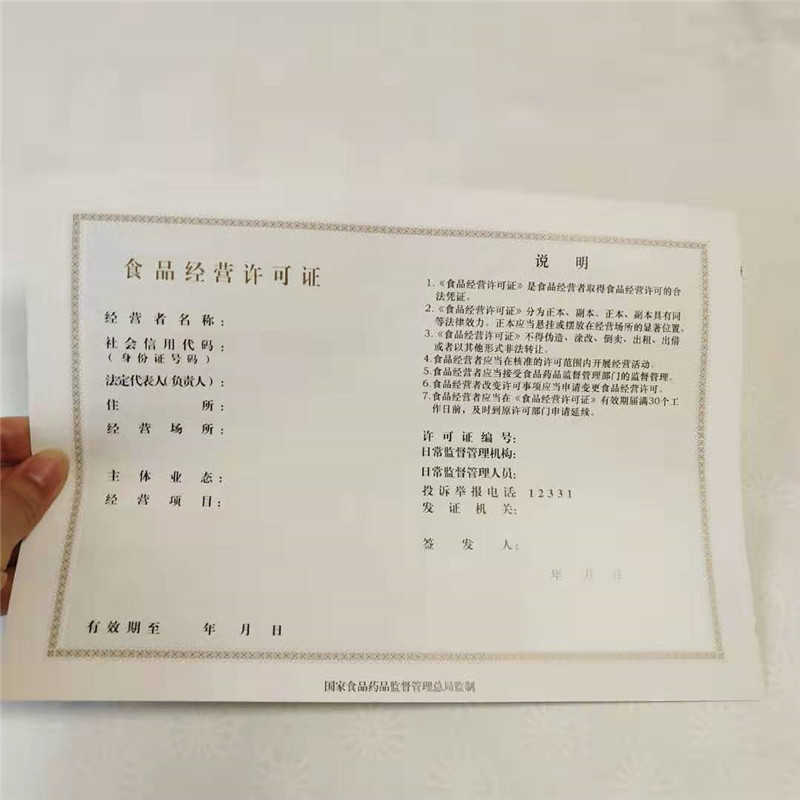 食品经营许可证
经营者名称：
社会信用代码：
（身份证号码）
法定代表人（负责人）：
住所：
经营场所：
主体业态：
经营项目：
有效期至 年 月 日
说 明
1.《食品经营许可证》是食品经营者取得食品经营许可的合
法凭证。
2.《食品经营许可证》分为正本、副本。正本、副本具有同
等法律效力。正本应当悬挂或摆放在经营场所的显著位置。
3.《食品经营许可证》不得伪造、涂改、倒卖、出租、出借
或者以其他形式非法转让。
4.食品经营者应当在核准的许可范围内开展经营活动。
5.食品经营者应当接受食品药品监督管理部门的监督管理。
6.食品经营者改变许可事项应当申请变更食品经营许可。
7.食品经营者应当在《食品经营许可证》有效期届满30个工
作日前，及时到原许可部门申请延续。
许可证编号：
日常监督管理机构：
日常监督管理人员：
投诉举报电话：12331
发证机关：
签发人：
年 月 日
国家食品药品监督管理总局监制